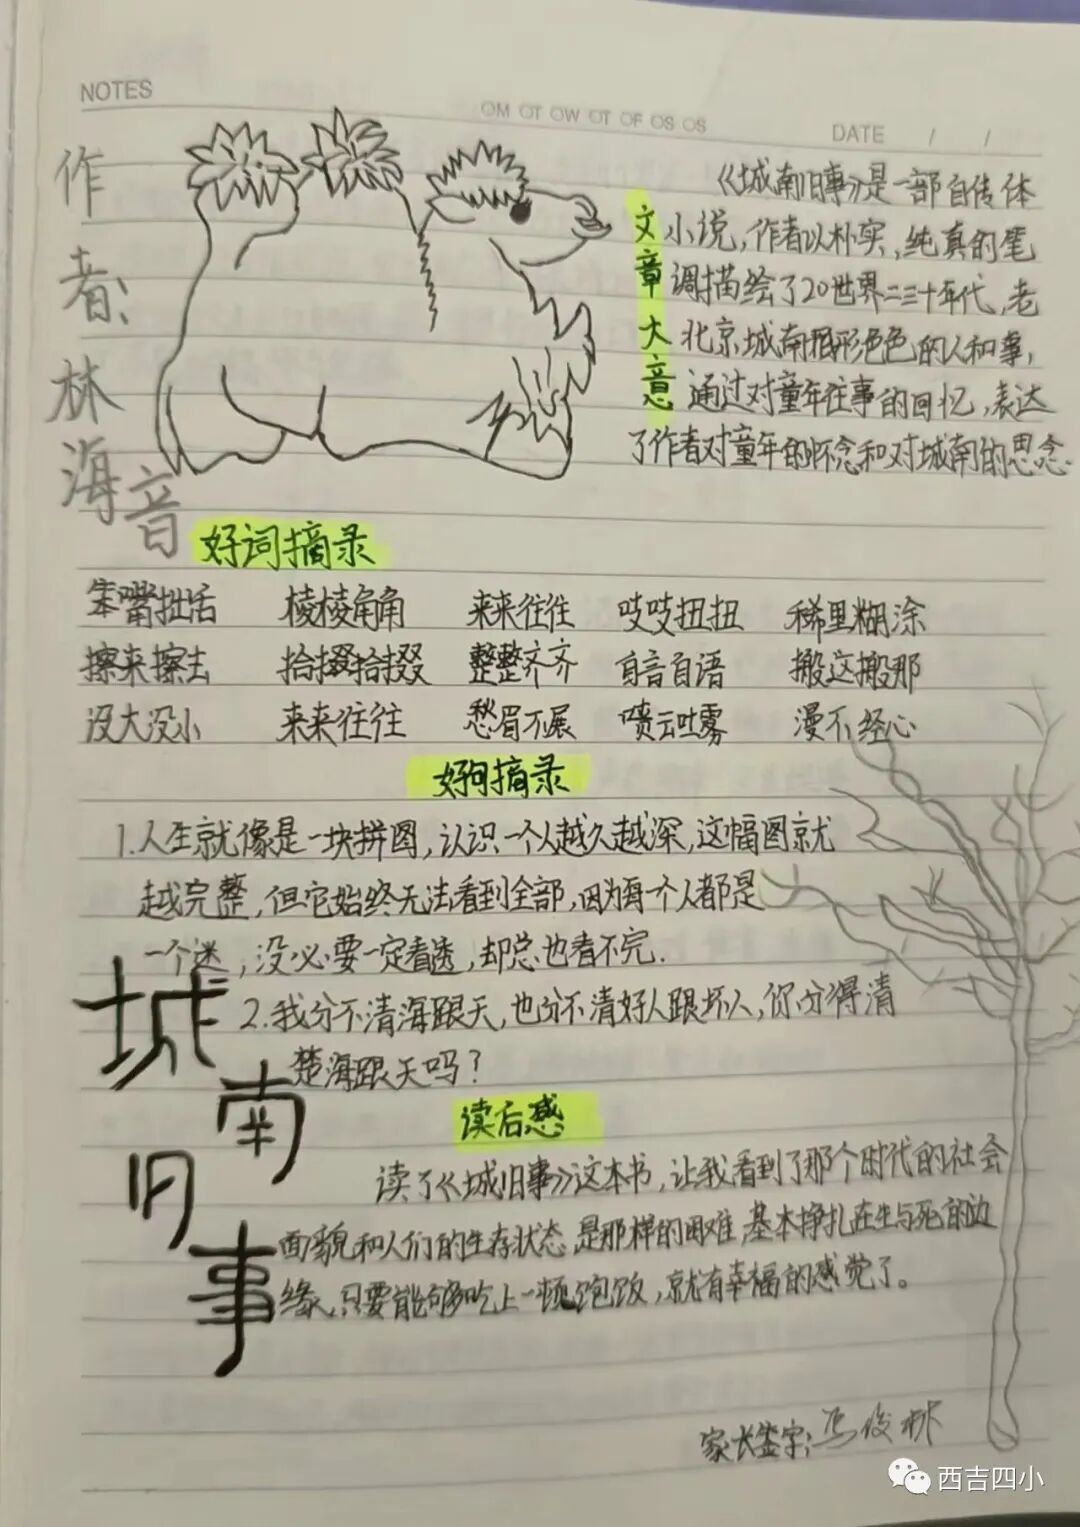 NOTES
OM OT OW OT OF OS OS
DATE / /
作者:林海音
文章大意
《城南旧事》是一部自传体
小说,作者以朴实,纯真的笔
调描绘了20世界二三十年代,老
北京城南形形色色的人和事,
通过对童年往事的回忆,表达
了作者对童年的怀念和对城南的思念.
好词摘录
笨嘴拙舌 棱棱角角 来来往往 吱吱扭扭 稀里糊涂
擦来擦去 拾掇拾掇 整整齐齐 自言自语 搬这搬那
没大没小 来来往往 愁眉不展 喷云吐雾 漫不经心
好句摘录
1.人生就像是一块拼图,认识一个人越久越深,这幅图就
越完整,但它始终无法看到全部,因为每一个人都是
一个迷,没必要一定看透,却总也看不完.
2.我分不清海跟天,也分不清好人跟坏人,你分得清
楚海跟天吗?
城南旧事
读后感
读了《城旧事》这本书,让我看到了那个时代的社会
面貌和人们的生存状态,是那样的困难,基本挣扎在生与死的边
缘,只要能够吃上一顿饱饭,就有幸福的感觉了。
家长签字:马俊林
西吉四小